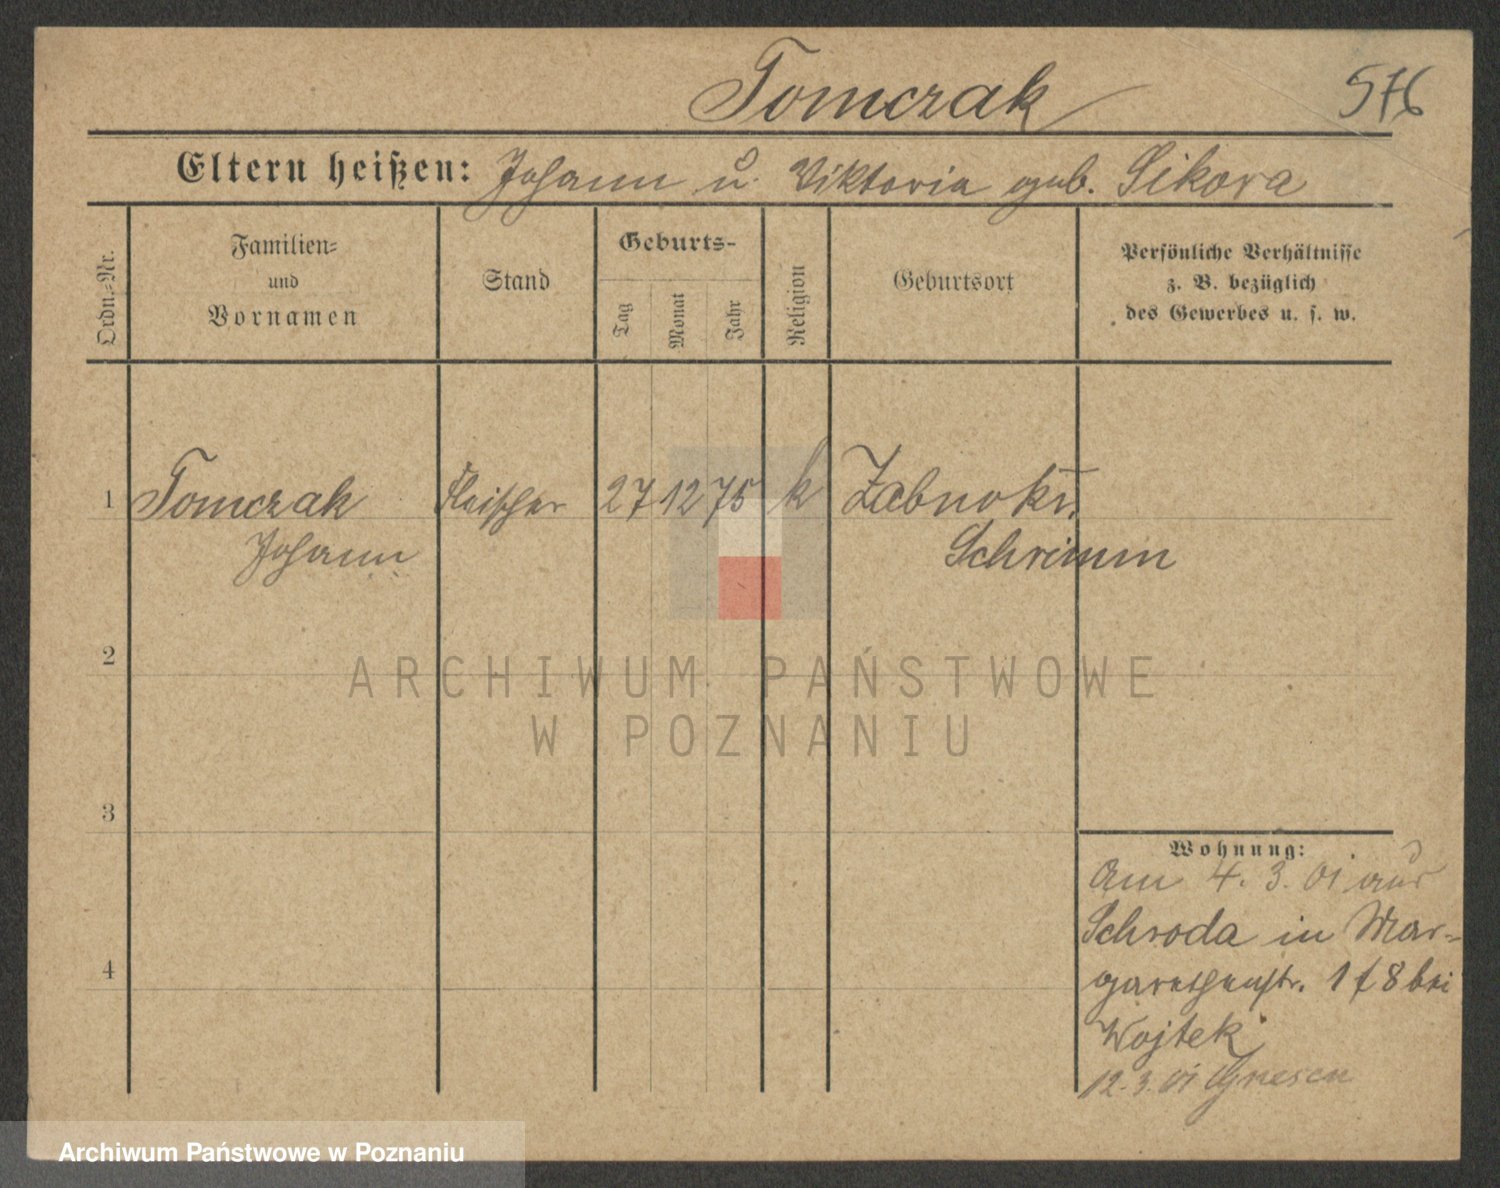 Tomczak 576
Eltern heißen: Johann u. Viktoria geb. Sikora
Ordn.-Nr.
Familien-
und
Vornamen
Stand
Geburts-
Tag
Monat
Jahr
Religion
Geburtsort
Persönliche Verhältnisse
z. B. bezüglich
des Gewerbes u. s. w.
1 Tomczak Fleischer 27 12 75 k Zabno Kr.
Johann Schrimm
2
ARCHIWUM PAŃSTWOWE
W POZNANIU
3
Wohnung:
Am 4. 3. 01 aus
Schroda in Mar-
garethenstr. 1 f 8 bei
Wojtek
4
12. 3. 01 Gnesen
Archiwum Państwowe w Poznaniu